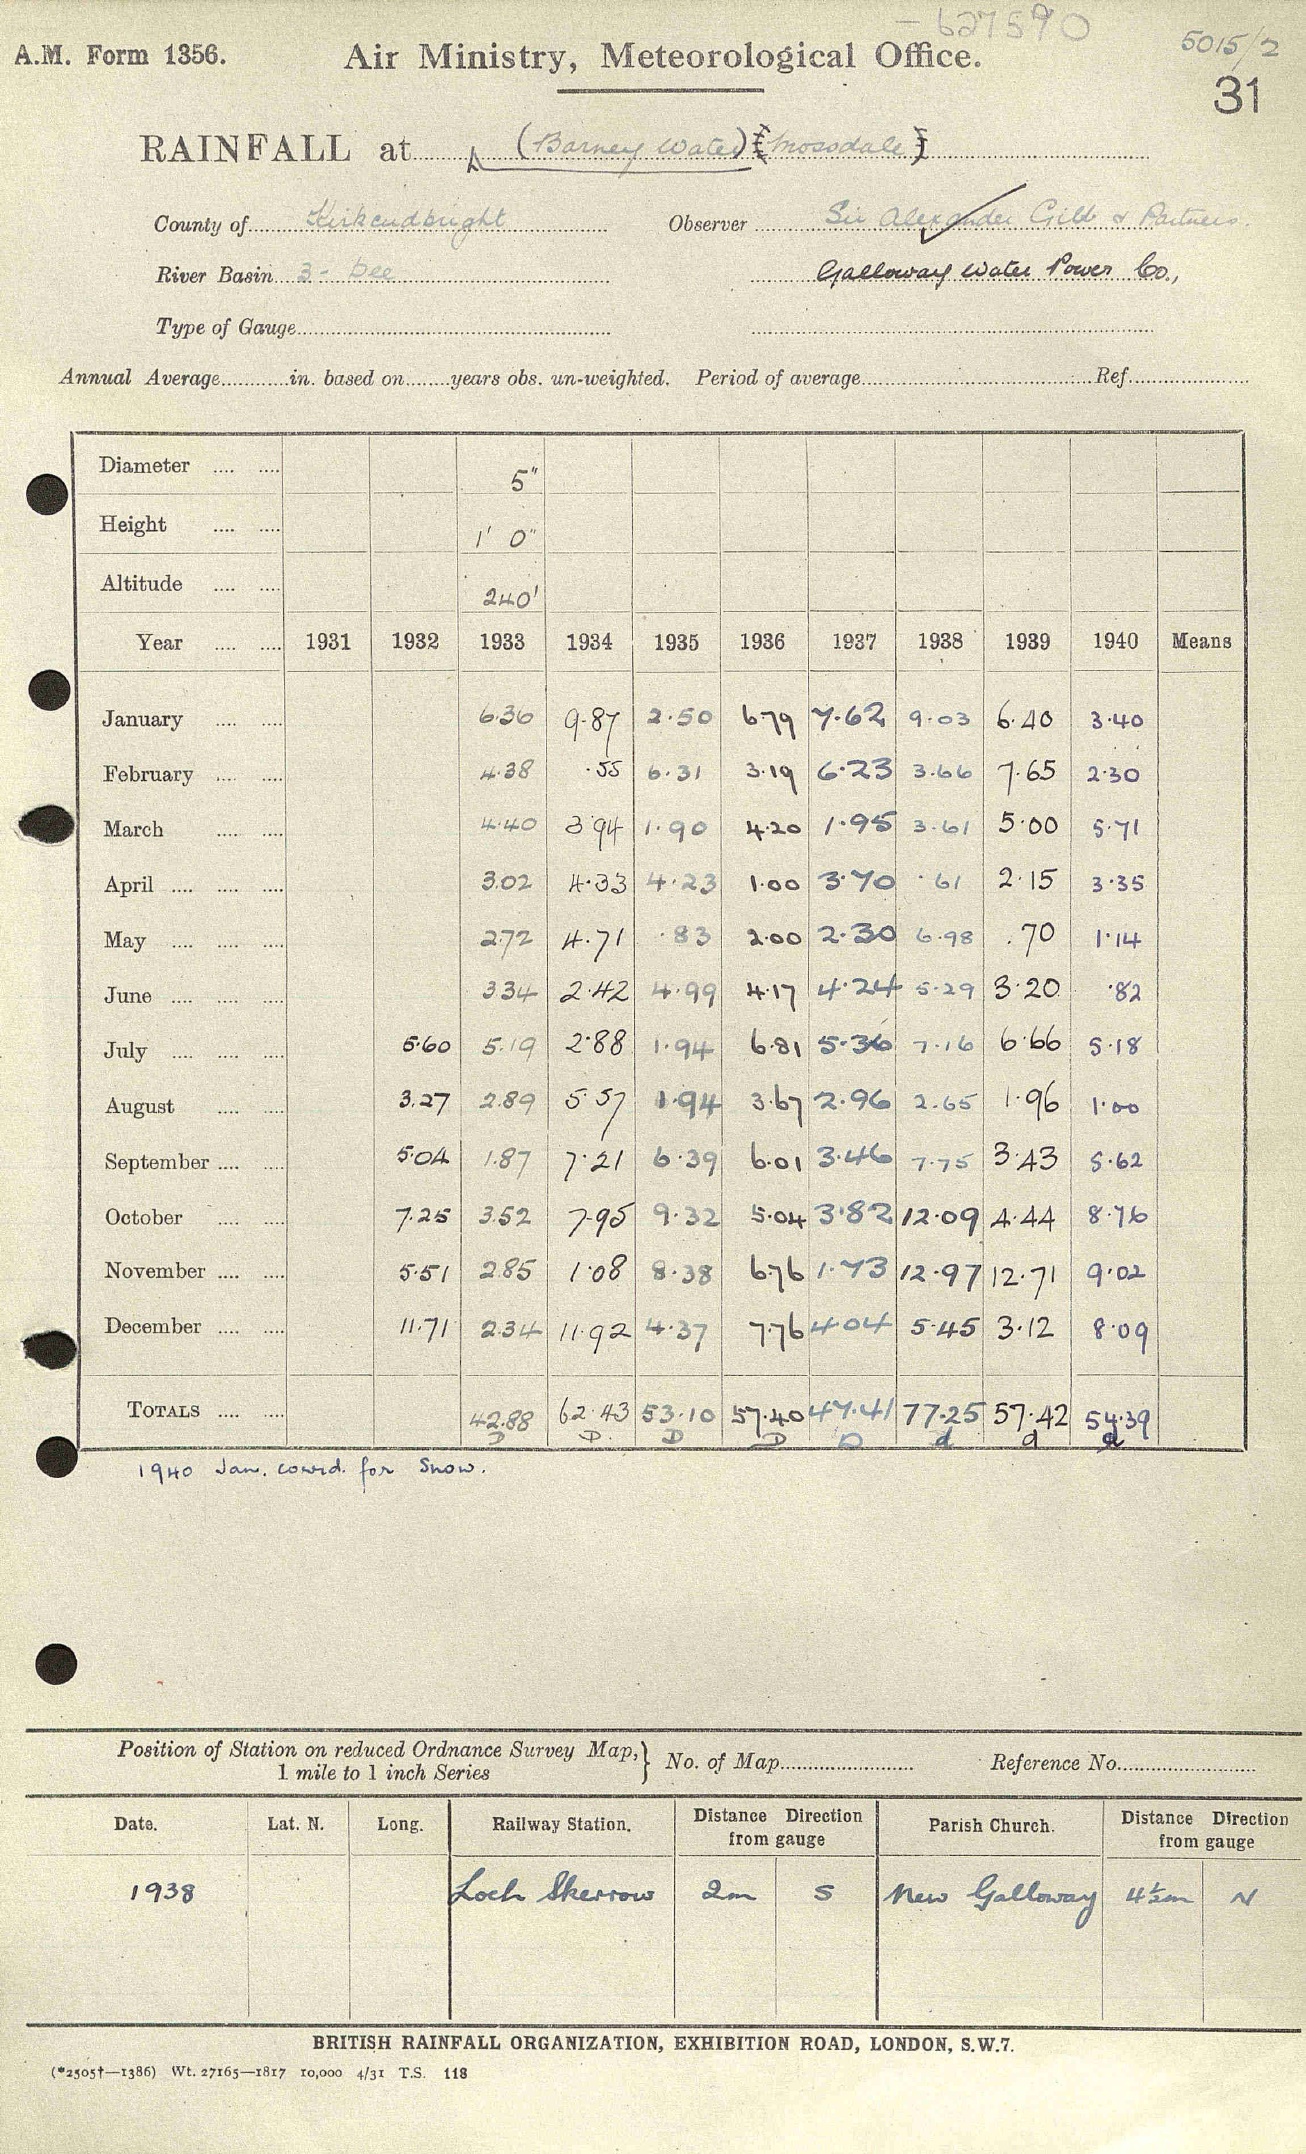 627590
A.M. Form 1356. Air Ministry, Meteorological Office. 5015/2
31
RAINFALL at (Barney Water) [Mossdale]
County of Kirkcudbright Observer Sir Alexander Gibb & Partners.
River Basin 3 - Dee Galloway Water Power Co.,
Type of Gauge
Annual Average in. based on years obs. un-weighted. Period of average Ref.
Diameter 5"
Height 1' 0"
Altitude 240'
Year 1931 1932 1933 1934 1935 1936 1937 1938 1939 1940 Means
January 6.36 9.87 2.50 6.79 7.62 9.03 6.40 3.40
February 4.38 .55 6.31 3.19 6.23 3.66 7.65 2.30
March 4.40 3.94 1.90 4.20 1.95 3.61 5.00 5.71
April 3.02 4.33 4.23 1.00 3.70 .61 2.15 3.35
May 2.72 4.71 .83 2.00 2.30 6.98 .70 1.14
June 3.34 2.42 4.99 4.17 4.24 5.29 3.20 .82
July 5.60 5.19 2.88 1.94 6.81 5.36 7.16 6.66 5.18
August 3.27 2.89 5.57 1.94 3.67 2.96 2.65 1.96 1.00
September 5.04 1.87 7.21 6.39 6.01 3.46 7.75 3.43 5.62
October 7.25 3.52 7.95 9.32 5.04 3.82 12.09 4.44 8.76
November 5.51 2.85 1.08 8.38 6.76 1.73 12.97 12.71 9.02
December 11.71 2.34 11.92 4.37 7.76 4.04 5.45 3.12 8.09
TOTALS 42.88 62.43 53.10 57.40 47.41 77.25 57.42 54.39
D D D D D d d d
1940 Jan. cowrd. for Snow.
Position of Station on reduced Ordnance Survey Map, } No. of Map Reference No.
1 mile to 1 inch Series
Date. Lat. N. Long. Railway Station. Distance Direction from gauge Parish Church. Distance Direction from gauge
1938 Loch Skerrow 2m S New Galloway 4½m N
BRITISH RAINFALL ORGANIZATION, EXHIBITION ROAD, LONDON, S.W.7.
(*2505†—1386) Wt. 27165—1817 10,000 4/31 T.S. 118